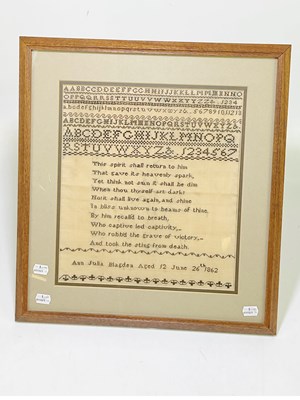 AABBCCDDEEFFGGHHIIJJKKLLMMNNO
OPPQQRRSSTTUUVVWWXXYYZZ& 1234
abcdefghijklmnopqrstuvwxyz
ABCDEFGHIJKLMNOPQRSTUVWXYZ
ABCDEFGHIJKLMNOPQ
RSTUVWXYZ& 1234567
This spirit shall return to him
That gave its heavenly spark,
Yet think not sun it shall be dim
When thou thyself art dark
No it shall live again, and shine
In bliss unknown to beams of thine,
By him recall'd to breath,
Who captive led captivity,
Who robb'd the grave of victory,
And took the sting from death.
Ann Julia Blagden Aged 12 June 26th 1862